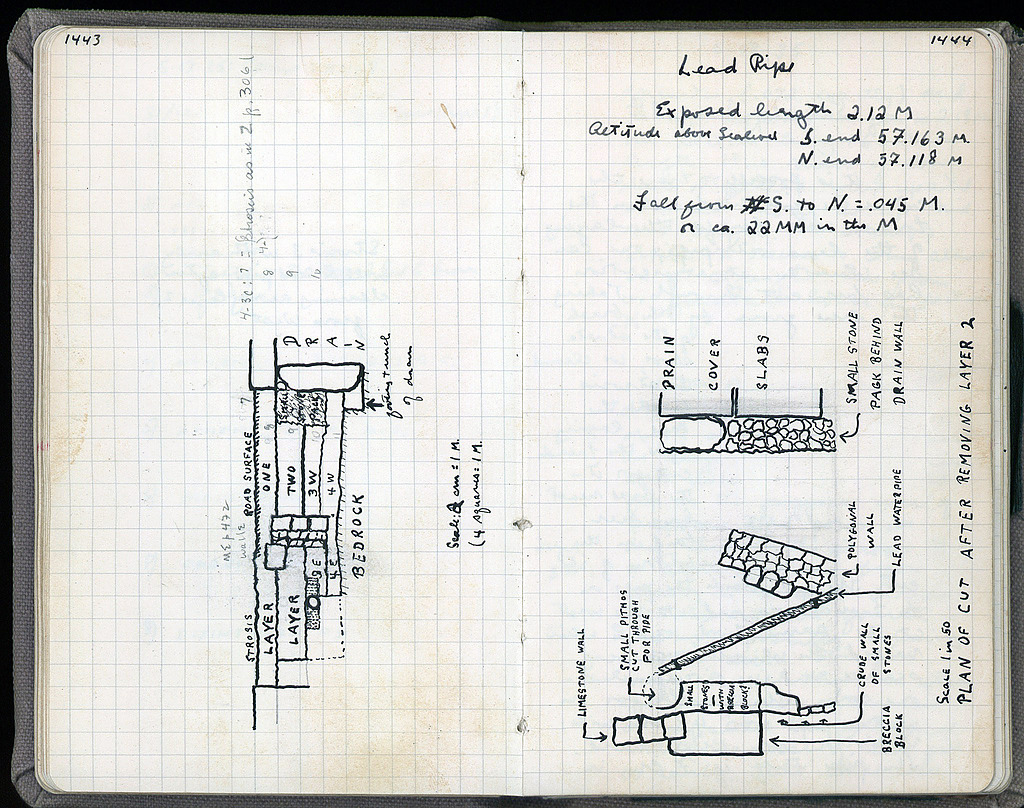 1443
4-3c: 7 = Strosis as in Z p. 3061
8 4-
9
10
D
R
A
I
N
foxing trench
of drain
ROAD SURFACE 7
STROSIS
LAYER ONE
LAYER TWO
3 W
4 W
3 E
4 E
BEDROCK
Small
Stone
Pack
walls
Scale: 2 cm = 1 M.
(4 squares = 1 M.
1444
Lead Pipe
Exposed length 2.12 M
Altitude above Sealevel S. end 57.163 M.
N. end 57.118 M
Fall from S. to N. = .045 M.
or ca. 22 MM in the M
DRAIN
COVER
SLABS
SMALL STONE
PACK BEHIND
DRAIN WALL
POLYGONAL
WALL
LEAD WATERPIPE
LIMESTONE WALL
SMALL PITHOS
CUT THROUGH
FOR PIPE
SMALL
STONES
WITH
BRECCIA
BLOCKS
CRUDE WALL
OF SMALL
STONES
BRECCIA
BLOCK
Scale 1 in 50
PLAN OF CUT AFTER REMOVING LAYER 2